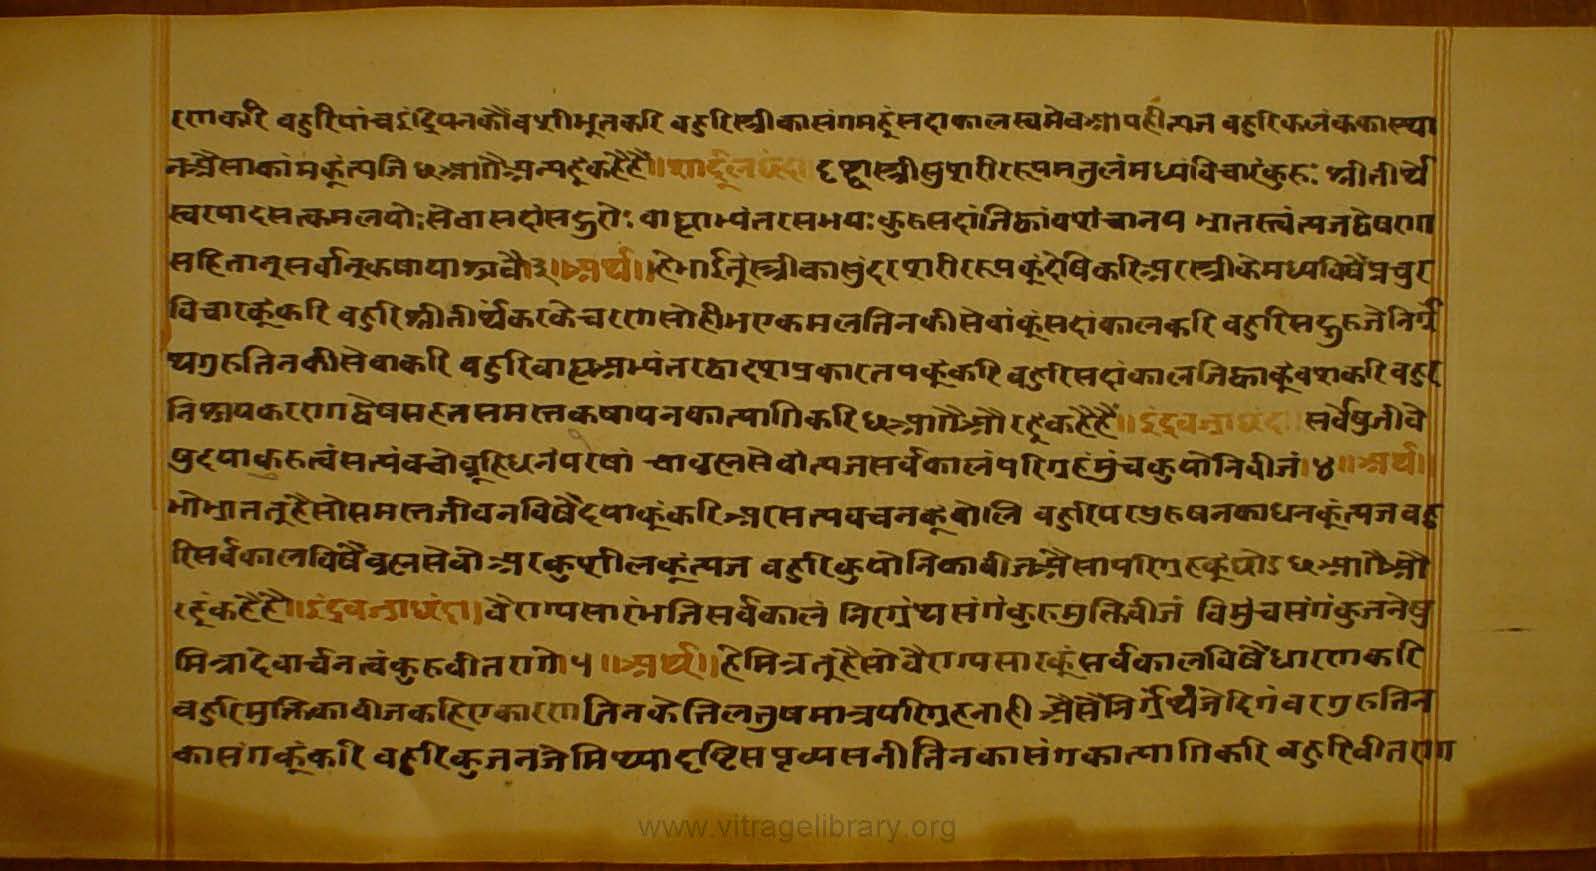 रणकरि बहुरिपांचइंद्रियनकौंवशीभूतकरि बहुरिस्त्रीकासंगमहूंसदाकालस्वमेवआपहीत्यज बहुरिकलंककास्था
नअैसाकांमकूंत्यजि ध आगैअन्यहूकहैहैं॥शार्दूलछंद॥ दृष्ट्वास्त्रीसुशरीररूपमतुलंमध्यंविचारंकुरुः श्रीतीर्थे
स्वरपादसत्कमलयोःसेवासदांसद्गुरोः बाह्याभ्यंतरसमयःकुरुसदांजिह्वांवशंचानय भ्रातस्त्वंत्यजद्वेषराग
सहितान्सर्वान्कषायाश्रवै३॥अर्थ॥हेभाईतूंस्त्रीकासुंदरशरीररूपकूंदेषिकरिअरस्त्रीकेमध्यविषैंप्रचुर
विचारकूंकरि बहुरिश्रीतीर्थंकरकेचरणसोहीभएकमलतिनकीसेवांकूंसदांकालकरि बहुरिसद्गुरुजेनिर्ग्रं
थगुरुतिनकीसेवाकरि बहुरिबाह्यअभ्यंतरद्वादशप्रकारतपकूंकरि बहुरिसदांकालजिह्वाकूंवशकरिबहुर
निश्चयकररागद्वेषसहतसमस्तकषायनकात्यागिकरि ध आगैऔरहूकहैहैं॥इंद्रवज्राछंद॥सर्वेषुजीवे
षुदयाकुरुत्वंसत्यंवचोब्रूहिधनंपरेषां चाब्रह्मसेवांत्यजसर्वकालंपरिग्रहंमुंचकुयोनिबीजं।४॥अर्थ॥
भोभ्राततूहैसोसमस्तजीवनविषैंदयाकूंकरिअरसत्यवचनकूंबोलि बहुरिपरपुरुषनकाधनकूंत्यजबहु
रिसर्वकालविषैंब्रह्मसेवोअरकुशीलकूंत्यज बहुरिकुयोनिकाबीजअैसापरिग्रहकूंछोड ध आगैऔ
रहूंकहैंहैं॥इंद्रवज्राछंद॥वैराग्यसारंभजिसर्वकालं निर्ग्रंथसंगंकुरुमुक्तिबीजं विमुंचसंगंकुजनेषु
मित्रादेवार्चनत्वंकुरुवीतरागे।५॥अर्थ॥हेमित्रतूहैसोवैराग्यसारकूंसर्वकालविषैंधारणकरि
बहुरिमुक्तिकाबीजकहिएकारणजिनकेतिलतुषमात्रपरिग्रहनाही अैसैनिर्ग्रंथजेदिगंबरगुरुतिन
कासंगकूंकरि बहुरिकुजनजेमिथ्यादृष्टिसप्तव्यसनीतिनकासंगकात्यागिकरि बहुरिवीतराग
www.vitragelibrary.org